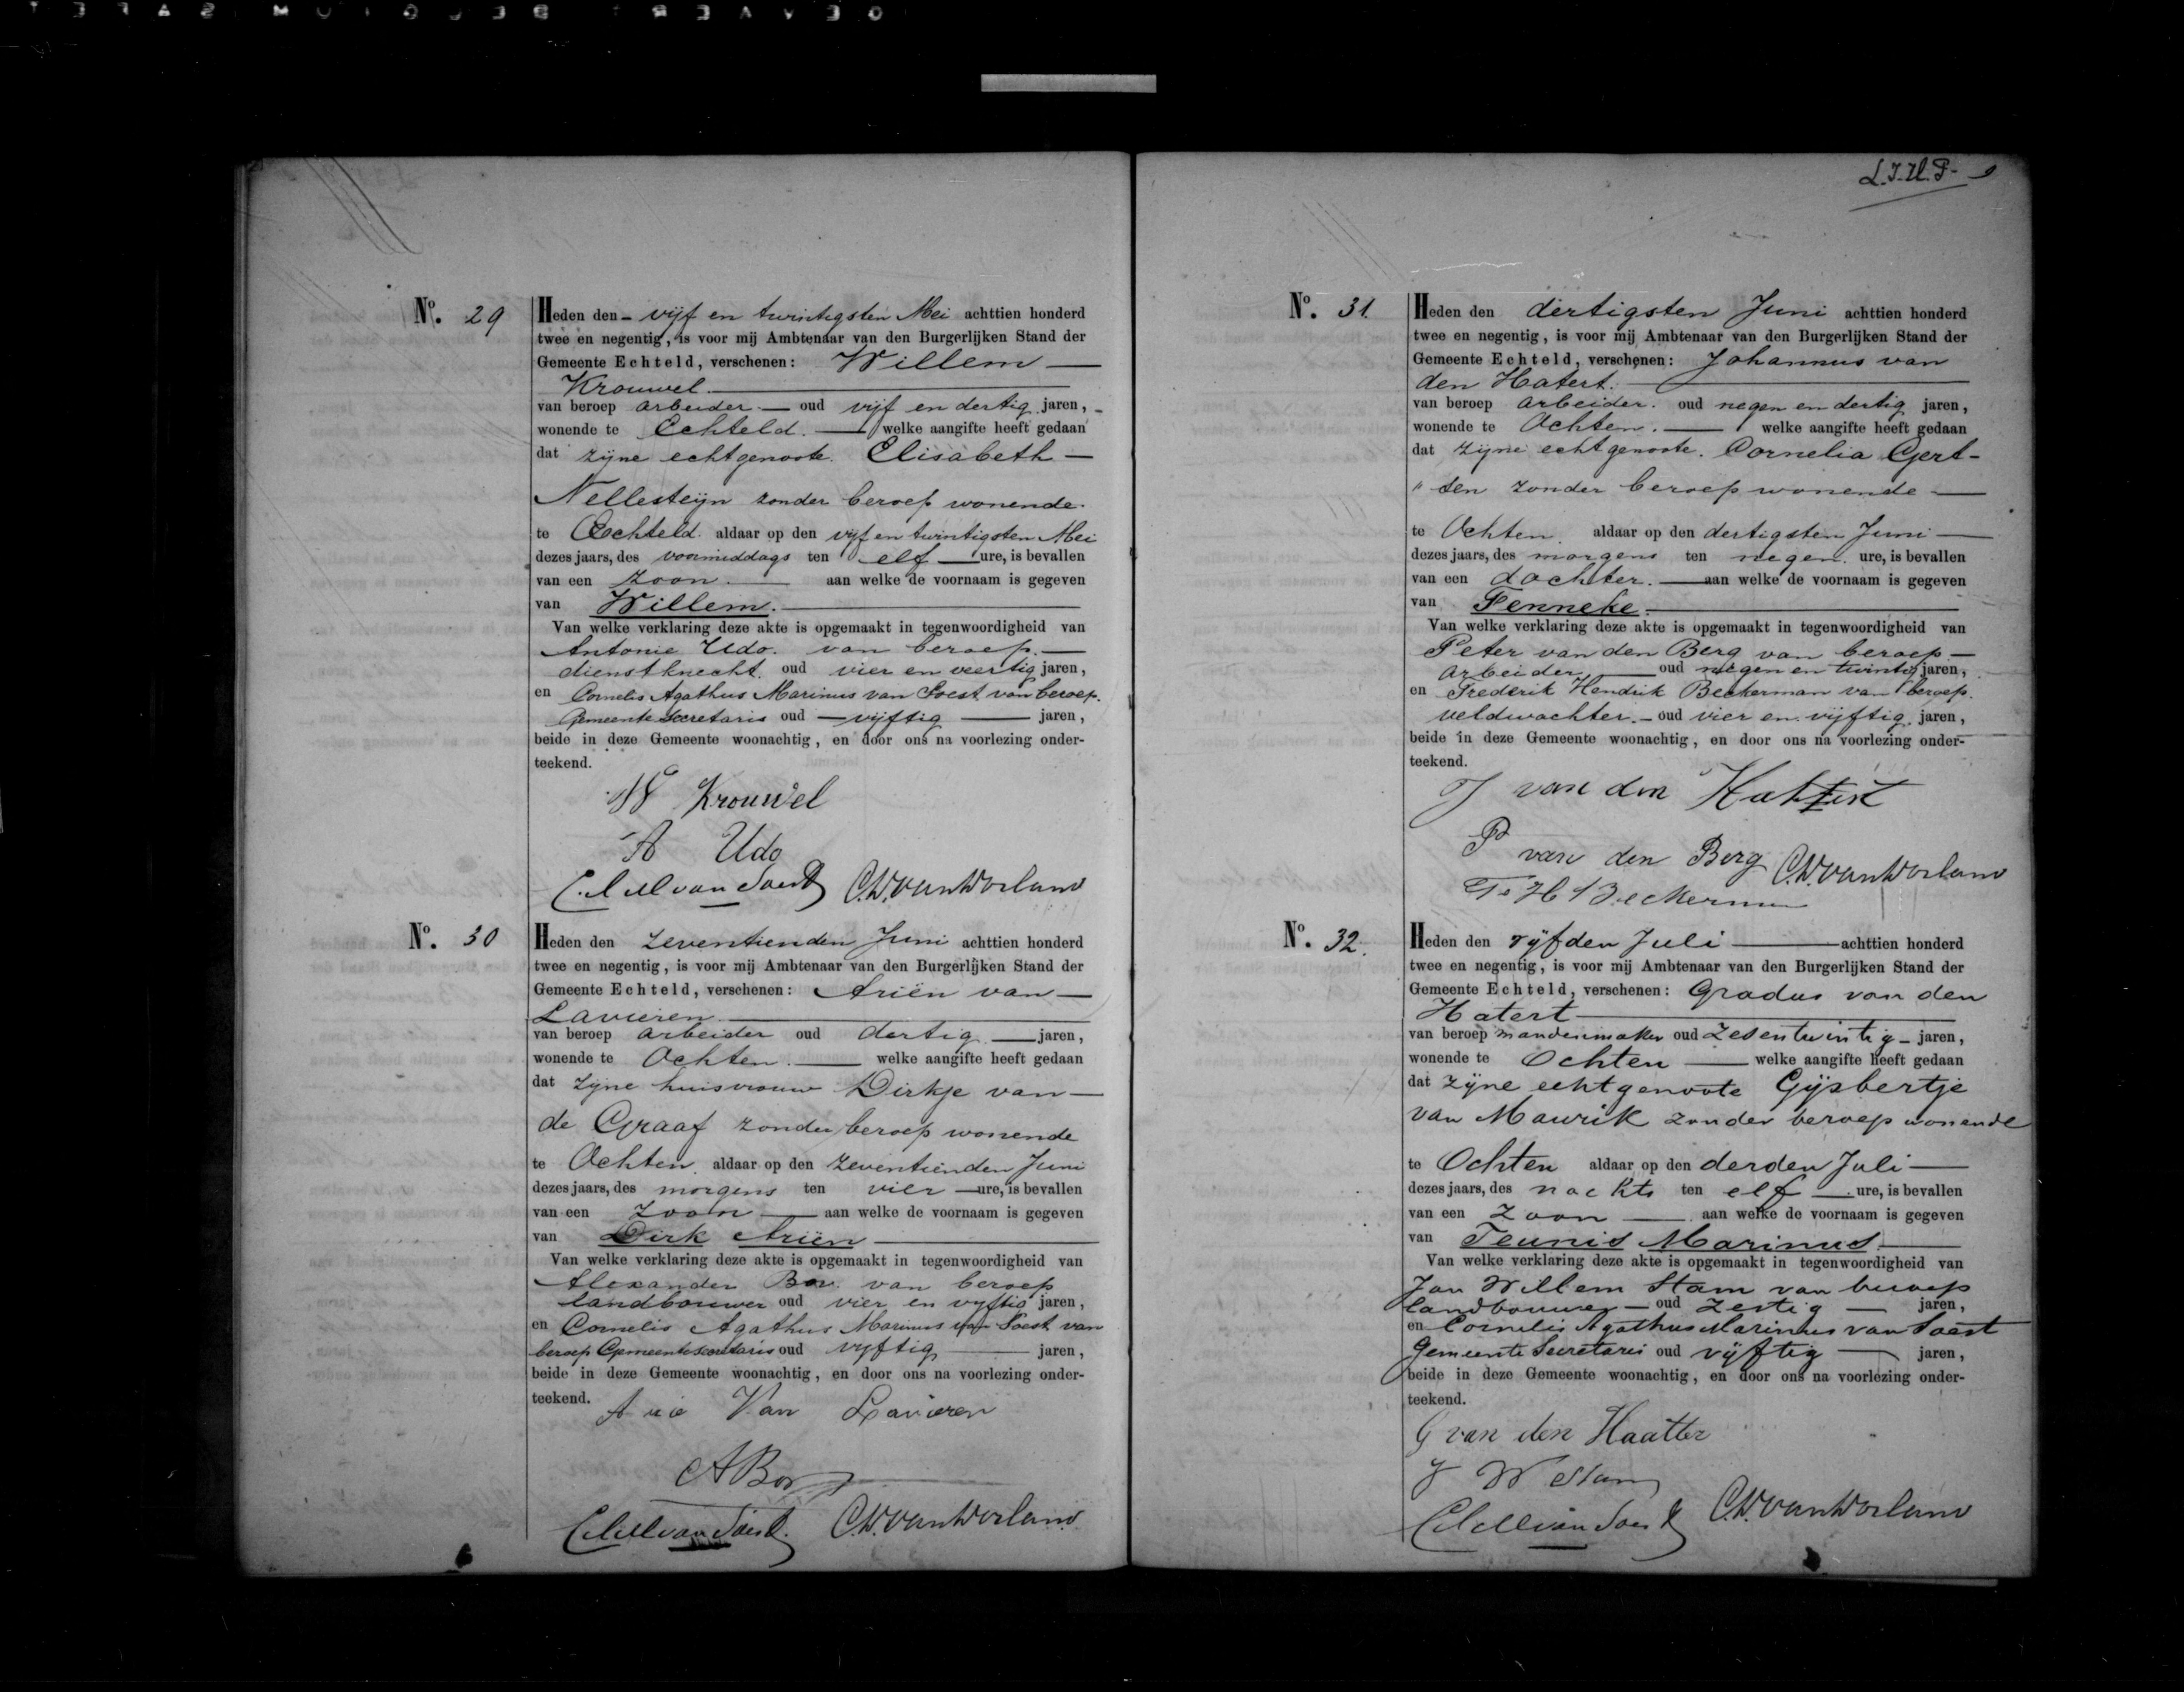 L.J.H.P.
No. 29
Heden den - vijf en twintigsten Mei achttien honderd
twee en negentig, is voor mij Ambtenaar van den Burgerlijken Stand der
Gemeente Echteld, verschenen: Willem —
Krouwel
van beroep arbeider — oud vijf en dertig jaren,
wonende te Echteld. — welke aangifte heeft gedaan
dat zijne echtgenoote. Elisabeth —
Nellesteijn zonder beroep wonende
te Echteld aldaar op den vijf en twintigsten Mei
dezes jaars, des voormiddags ten elf — ure, is bevallen
van een zoon. — aan welke de voornaam is gegeven
van Willem.
Van welke verklaring deze akte is opgemaakt in tegenwoordigheid van
Antonie Udo. van beroep. —
dienstknecht. oud vier en veertig jaren,
en Cornelis Agathus Marinus van Soest van beroep.
Gemeente Secretaris oud — vijftig — jaren,
beide in deze Gemeente woonachtig, en door ons na voorlezing onder-
teekend.
W Krouwel
A Udo
C.A.M van Soest C.W. van Dorland
No. 30
Heden den zeventienden Juni achttien honderd
twee en negentig, is voor mij Ambtenaar van den Burgerlijken Stand der
Gemeente Echteld, verschenen: Ariën van —
Lavieren
van beroep arbeider oud dertig — jaren,
wonende te Ochten. — welke aangifte heeft gedaan
dat zijne huisvrouw Dirkje van —
de Graaf zonder beroep wonende
te Ochten. aldaar op den zeventienden Juni
dezes jaars, des morgens ten vier — ure, is bevallen
van een zoon — aan welke de voornaam is gegeven
van Dirk Ariën
Van welke verklaring deze akte is opgemaakt in tegenwoordigheid van
Alexander Bor. van beroep
landbouwer oud vier en vyftig jaren,
en Cornelis Agathus Marinus van Soest van
beroep Gemeentesecretaris oud vyftig — jaren,
beide in deze Gemeente woonachtig, en door ons na voorlezing onder-
teekend.
Van Lavieren
A Bor
C.A.M van Soest. C.W. van Dorland.
No. 31.
Heden den dertigsten Juni achttien honderd
twee en negentig, is voor mij Ambtenaar van den Burgerlijken Stand der
Gemeente Echteld, verschenen: Johannus van
den Hatert.
van beroep arbeider. oud negen en dertig jaren,
wonende te Ochten. — welke aangifte heeft gedaan
dat zijne echtgenoote. Cornelia Gert-
" sen zonder beroep wonende —
te Ochten. aldaar op den dertigsten Juni —
dezes jaars, des morgens ten negen. ure, is bevallen
van een dochter. — aan welke de voornaam is gegeven
van Fenneke.
Van welke verklaring deze akte is opgemaakt in tegenwoordigheid van
Peter van den Berg van beroep —
arbeider — oud negen en twintig jaren,
en Frederik Hendrik Beckerman van beroep.
veldwachter. — oud vier en vijftig. jaren,
beide in deze Gemeente woonachtig, en door ons na voorlezing onder-
teekend.
J van den Hattert
P van den Berg C.W. van Dorland
F H Beckerman
No. 32.
Heden den vijfden Juli — achttien honderd
twee en negentig, is voor mij Ambtenaar van den Burgerlijken Stand der
Gemeente Echteld, verschenen: Gradus van den
Hatert
van beroep mandenmaker oud zesentwintig — jaren,
wonende te Ochten — welke aangifte heeft gedaan
dat zijne echtgenoote Gijsbertje
van Maurik zonder beroep wonende
te Ochten aldaar op den derden Juli —
dezes jaars, des nachts ten elf — ure, is bevallen
van een zoon — aan welke de voornaam is gegeven
van Teunis Marinus.
Van welke verklaring deze akte is opgemaakt in tegenwoordigheid van
Jan Willem Stam van beroep
landbouwer — oud zestig — jaren,
en Cornelis Agathus Marinus van Soest
Gemeente Secretaris oud vijftig — jaren,
beide in deze Gemeente woonachtig, en door ons na voorlezing onder-
teekend.
G van den Haatter
J W Stam
C.A.M van Soest C.W. van Dorland